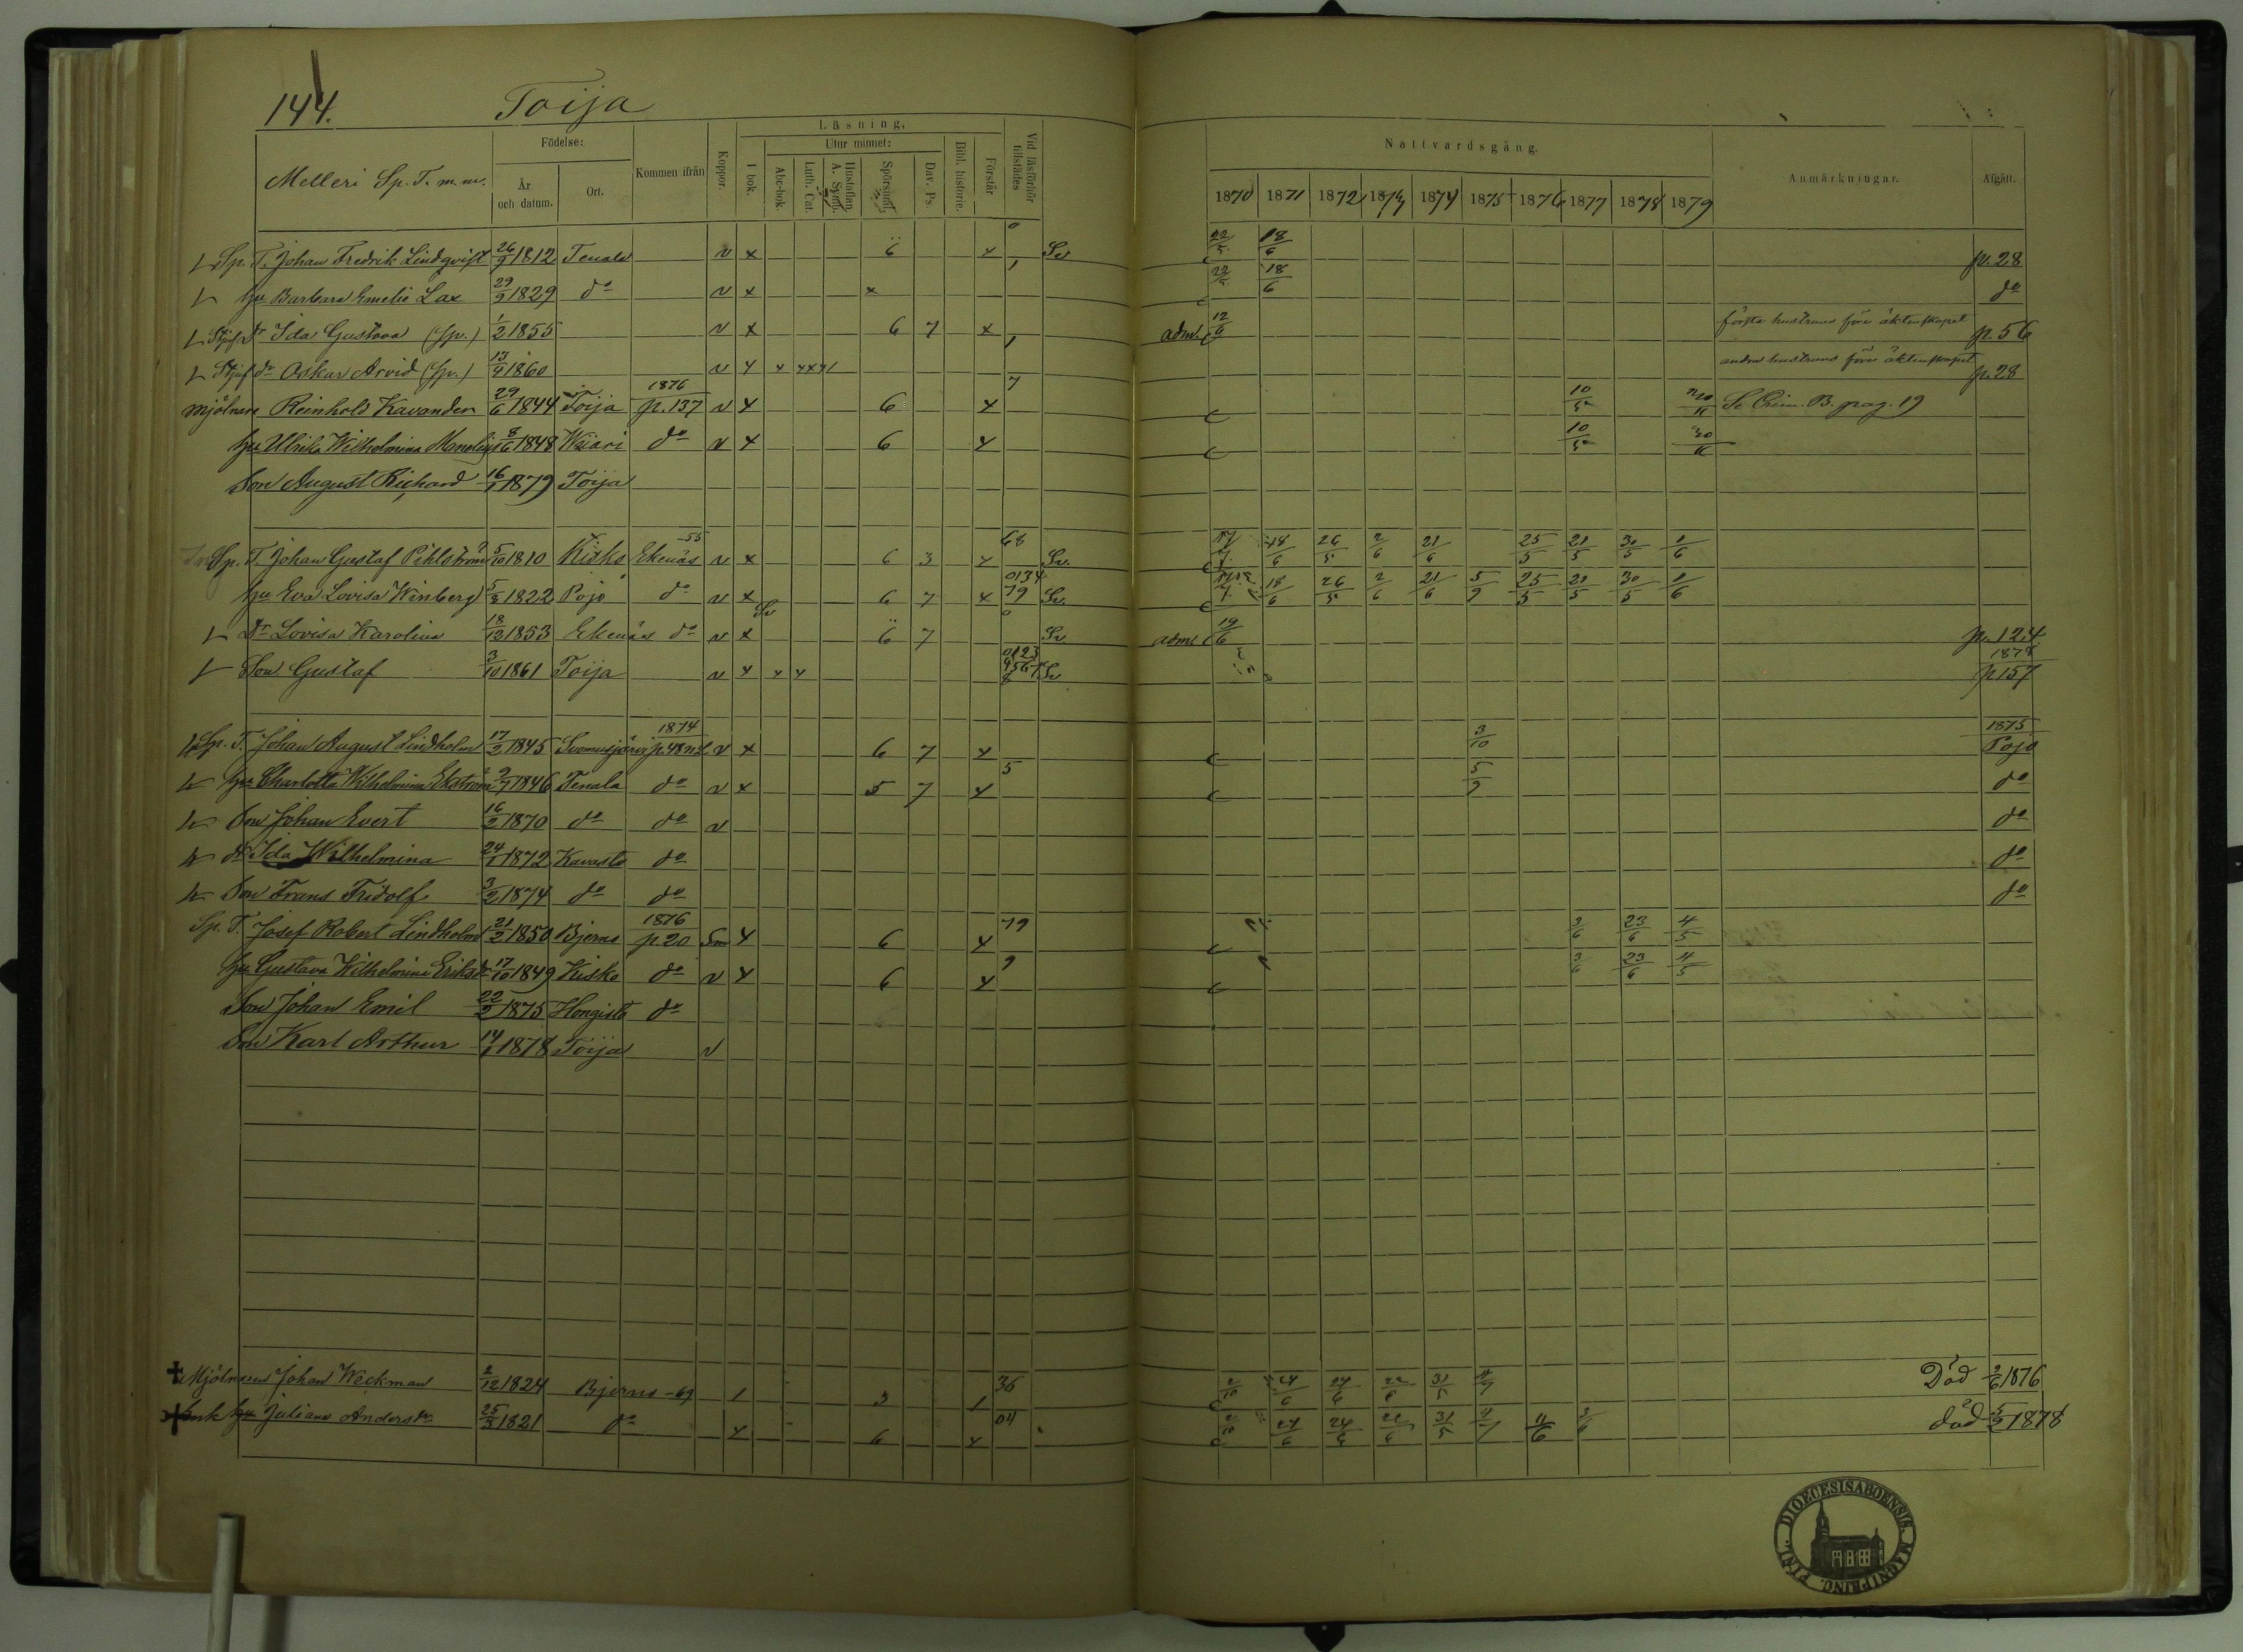 144. Toija
Melleri Sp. T. m. m.
Födelse: År och datum. Ort. Kommen ifrån Koppor. Läsning. I bok. Utur minnet: Abc-bok. Luth. Cat. Hustaflan. A. Symb. Spörsmål. Dav. Ps. Bibl. historie. Förstår Vid läsförhör tillstädes
Nattvardsgång. 1870 1871 1872 1873 1874 1875 1876 1877 1878 1879 Anmärkningar. Afgått.
Sp. T. Johan Fredrik Lindqvist 26/9 1812 Tenala v x 6 x 0 Sv 22/5 18/6 p. 28
hu Barbara Emelie Lax 29/9 1829 do v x x 1 22/5 18/6 do
Stjuf dr Ida Gustava (sp.) 1/2 1855 v x 6 7 x adm. 12/6 första hustruns före äktenskapet p. 56
Stjuf Oskar Arvid (sp.) 13/4 1860 v x andra hustruns före äktenskapet p. 28
Mjölnare Reinhold Kavander 29/6 1844 Toija 1876 p. 137 v x 6 x 7 10/5 30/11 Se Crim. B. pag. 19
hu Ulrika Wilhelmina 8/6 1848 Wiiari do v x 6 x 10/5 30/11
Son August Richard 16/1 1879 Toija
Sp. T. Johan Gustaf Pihlström 5/10 1810 Kisko Ekenäs -55 v x 6 3 x 68 Sv. 18/6 26/5 2/6 21/6 25/5 21/5 30/5 1/6
hu Eva Lovisa Winberg 5/3 1822 Pojo do v x Sv 6 7 x 0134 79 Sv. 18/6 26/5 2/6 21/6 5/9 25/5 21/5 30/5 1/6
Dr Lovisa Karolina 18/12 1853 Ekenäs do v x 6 7 0 Sv adm 19/6 p. 124
Son Gustaf 3/10 1861 Toija v x x x 0123 Sv 1878 p 157
Sp. T. Johan August Lindholm 17/2 1845 Suomusjärvi 1874 v x 6 7 x 3/10 1875 Pojo
hu Charlotta Wilhelmina Ekström 9/7 1846 Tenala do v x 5 7 x 5 5/9 do
Son Johan Evert 16/2 1870 do do v do
dr Ida Wilhelmina 24/1 1872 Kavasto do do
Son Frans Fridolf 3/2 1874 do do do
Sp. T. Josef Robert Lindholm 21/2 1850 Bjerno 1876 p. 20 Sm x 6 x 79 3/6 23/6 4/5
hu Gustava Wilhelmina Eriksdr 17/10 1849 Kisko do v x 6 x 9 3/6 23/6 4/5
Son Johan Emil 22/2 1875 Hongisto do
Son Karl Arthur 14/1 1878 Toija v
Mjölnaren Johan Weckman 2/12 1824 Bjerno -69 1 3 1 36 2/10 24/6 24/6 31/5 Död 2/6 1876
Enk hu Juliana Andersdr 25/3 1821 do x 6 x 04 2/10 24/6 24/6 31/5 11/6 3/6 död 5/2 1878
DIOECESIS ABOENSIS. MAGNI PRINC. FINL.